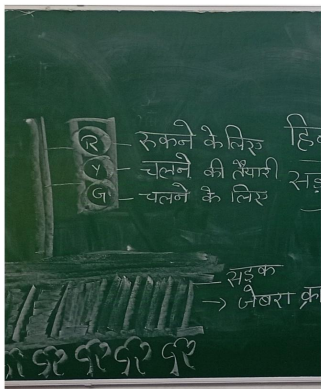 R - रुकने के लिए
Y - चलने की तैयारी
G - चलने के लिए
सड़क
→ जेबरा